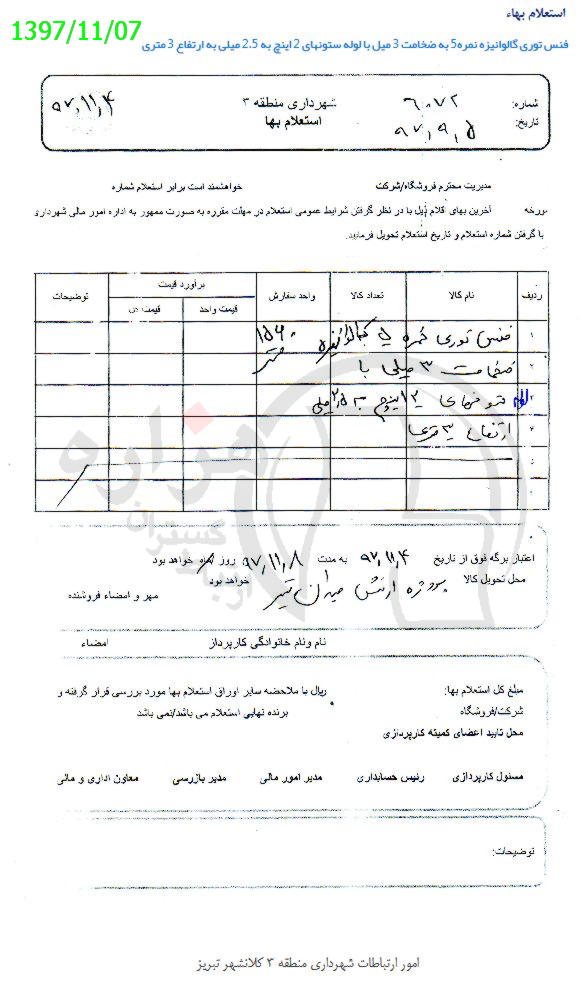 استعلام بهاء
1397/11/07
فنس توری گالوانیزه نمره5 به ضخامت 3 میل با لوله ستونهای 2 اینچ به 2.5 میلی به ارتفاع 3 متری
شماره: ۶۰۷۲
شهرداری منطقه ۳
۹۷,۱۱,۴
تاریخ: ۹۷,۹,۵
استعلام بها
مدیریت محترم فروشگاه/شرکت
خواهشمند است برابر استعلام شماره
مورخه آخرین بهای اقلام ذیل با در نظر گرفتن شرایط عمومی استعلام در مهلت مقرره به صورت ممهور به اداره امور مالی شهرداری
با گرفتن شماره استعلام و تاریخ استعلام تحویل فرمایید.
ردیف نام کالا تعداد کالا واحد سفارش برآورد قیمت توضیحات
قیمت واحد قیمت کل
۱ فنس توری نمره ۵ گالوانیزه
متر
۲ ضخامت ۳ میلی با
۳ لوله ستونهای ۲ اینچ به ۲,۵ میلی
۴ ارتفاع ۳ متری
۵
۶
اعتبار برگه فوق از تاریخ ۹۷,۱۱,۴ به مدت ۹۷,۱۱,۸ روز/ماه خواهد بود
محل تحویل کالا پروژه ارتش میدان تیر خواهد بود
مهر و امضاء فروشنده
نام ونام خانوادگی کارپرداز
امضاء
مبلغ کل استعلام بها: ریال با ملاحضه سایر اوراق استعلام بها مورد بررسی قرار گرفته و
شرکت/فروشگاه برنده نهایی استعلام می باشد/نمی باشد
محل تایید اعضای کمیته کارپردازی
مسئول کارپردازی رئیس حسابداری مدیر امور مالی مدیر بازرسی معاون اداری و مالی
توضیحات:
هزاره
گستران
امور ارتباطات شهرداری منطقه ۳ کلانشهر تبریز